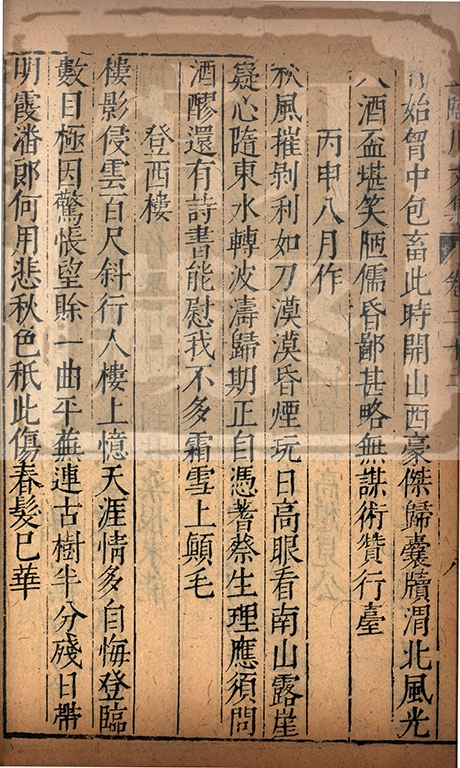 臨川文集 卷二十三 八
始胷中包畜此時開山西豪傑歸囊牘渭北風光
入酒盃堪笑陋儒昏鄙甚略無謀術贊行臺
丙申八月作
秋風摧剝利如刀漠漠昏煙玩日高眼看南山露崖
嶷心隨東水轉波濤歸期正自憑蓍蔡生理應須問
酒醪還有詩書能慰我不多霜雪上顚毛
登西樓
樓影侵雲百尺斜行人樓上憶天涯情多自悔登臨
數目極因驚悵望賒一曲平蕪連古樹半分殘日帶
明霞潘郎何用悲秋色秪此傷春髮已華